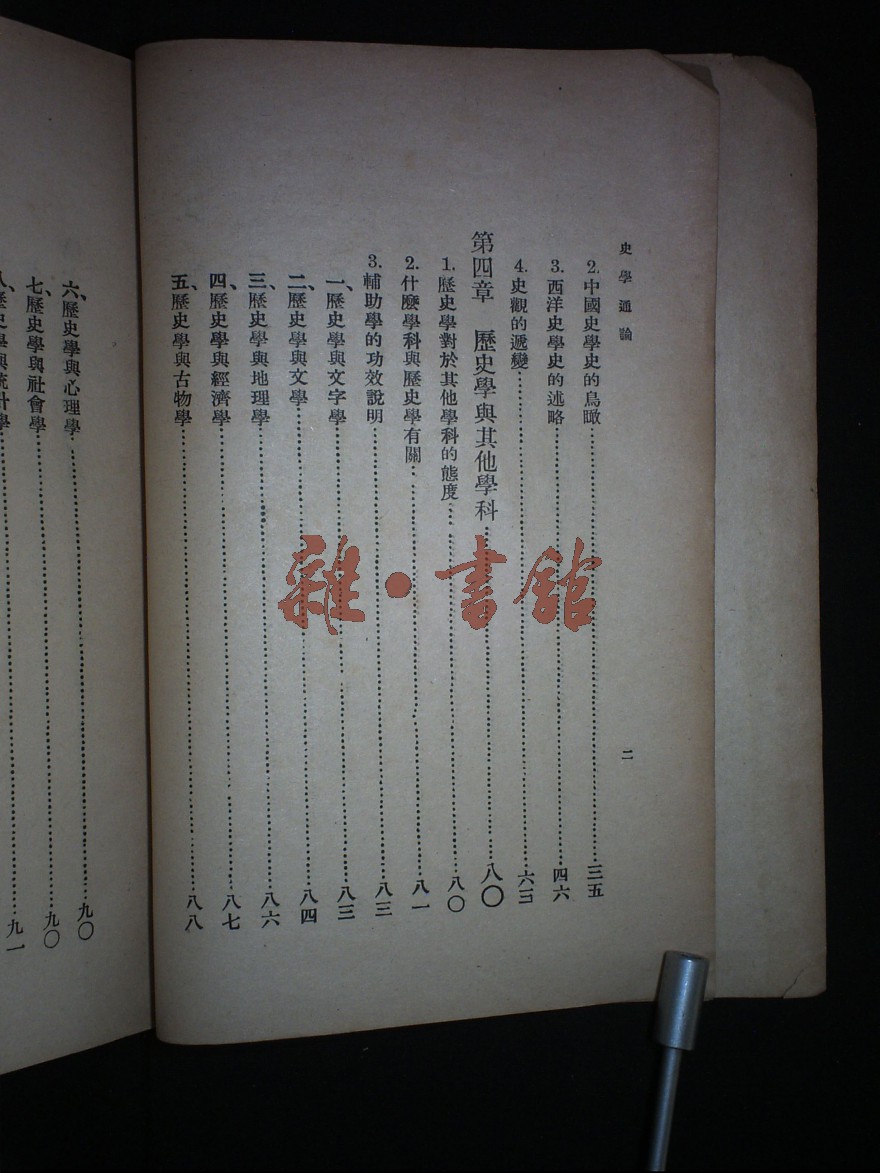 史學通論
二
2. 中國史學史的鳥瞰……三五
3. 西洋史學史的述略……四六
4. 史觀的遞變……六三
第四章 歷史學與其他學科……八〇
1. 歷史學對於其他學科的態度……八〇
2. 什麼學科與歷史學有關……八一
3. 輔助學的功效說明……八三
一、歷史學與文字學……八三
二、歷史學與文學……八四
三、歷史學與地理學……八六
四、歷史學與經濟學……八七
五、歷史學與古物學……八八
六、歷史學與心理學……九〇
七、歷史學與社會學……九〇
八、歷史學與統計學……九一
雜·書館